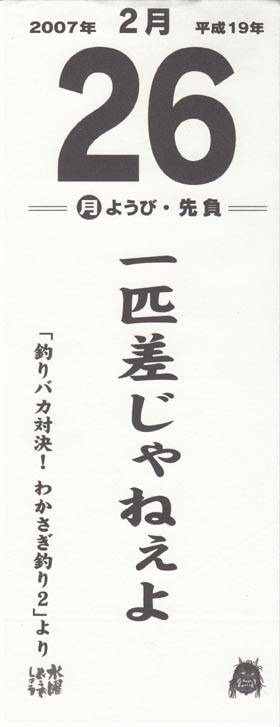 2007年 2月 平成19年
26
月ようび・先負
一匹差じゃねぇよ
「釣りバカ対決！わかさぎ釣り2」より
水曜
どうで
しょう